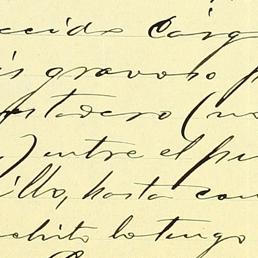 ecida Carg
is gravoso p
ostadero (no
) entre el pu
illo, hasta con
uchito lo tengo